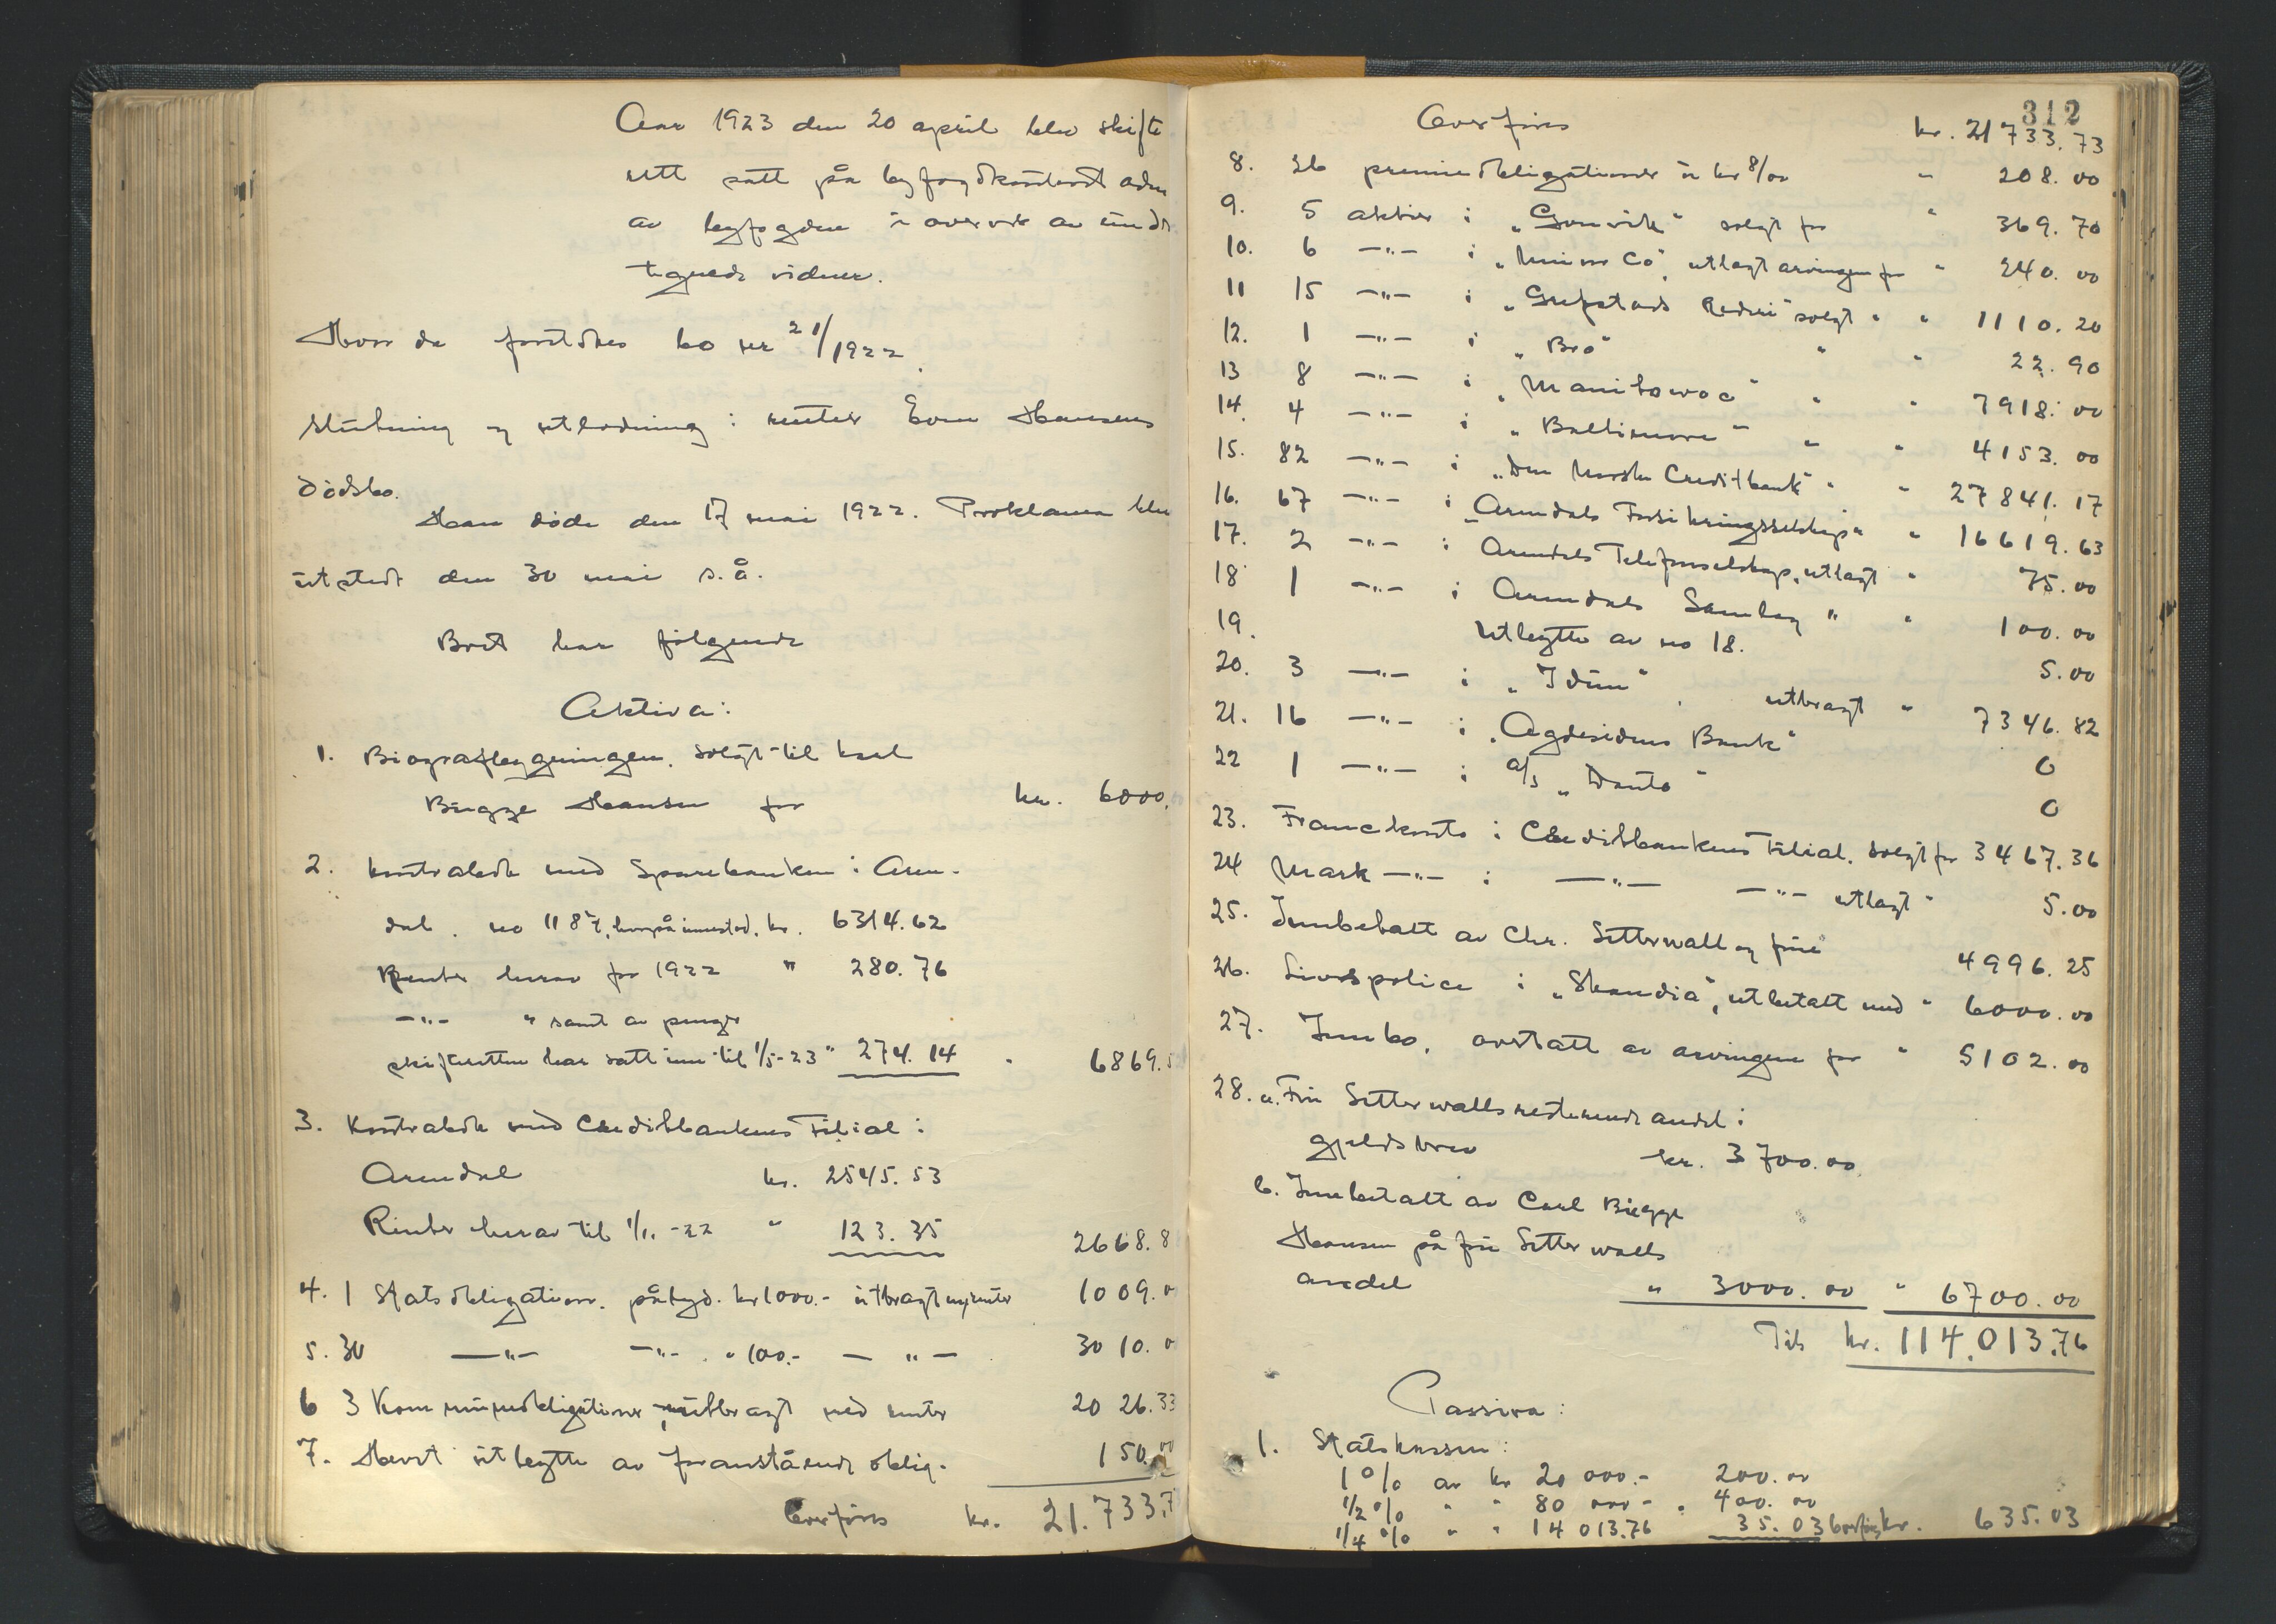 Aar 1923 den 20 april blev skifte
rett satt på byfogdkontoret adm
av byfogden i overvær av undr
tegnede vidner.
Hvor da foretokes bo nr 21/1922.
Slutning og utlodning i rentier Even Hansens
dödsbo.
Han döde den 17 mai 1922. Proklama blev
utstedt den 30 mai s.å.
Boet har følgende
Aktiva:
1. Biografbygningen, solgt til Karl
Bugge Hansen for kr. 6000.
2. Kontrabok med Sparebanken i Aren-
dal. no 1187, hvorpå innestod, kr. 6314.62
Renter herav for 1922 " 280.76
—"— " samt av penger
skifteretten har satt inn til 1/5-23 " 274.14 " 6869.5
3. Kontrabok med Creditbankens Filial i
Arendal kr. 2545.53
Renter herav til 1/1.-22 " 123.35 2668.8
4. 1 Statsobligation. pålyd. kr 1000.- utbragt m/renter 1009.0
5. 30 —"— —"— . " 100.- — " — 3010.0
6 3 Kommuneobligationer, utbragt med renter 2026.33
7. Hevet utbytte av foranstående oblig. 150.00
Overføres kr. 21.733.7
312
Overføres kr. 21733.73
8. 26 premieobligationer à kr 8/00 " 208.00
9. 5 aktier i "Gonvik" solgt for " 369.70
10. 6 —"— i "Union Co", utlagt arvingen for " 240.00
11 15 —"— i "Grefstads Rederi" solgt " " 1110.20
12. 1 —"— i "Bro" " " 22.90
13 8 —"— i "Manitowoc" " " 7918.00
14. 4 —"— i "Baltimore" " " 4153.00
15. 82 —"— i "Den Norske Creditbank" " " 27841.17
16. 67 —"— i "Arendals Forsikringsselskap" " " 16619.63
17. 2 —"— i Arendals Telefonselskap, utlagt " 75.00
18 1 —"— i Arendals Samlag " " 100.00
19. Utbytte av no 18. 5.00
20. 3 —"— i "Idun" , utbragt " 7346.82
21. 16 —"— i "Agdesidens Bank" 0
22 1 —"— i a/s "Danto" 0
23. Franckonto i Creditbankens Filial. solgt for 3467.36
24 Mark —"— i —"— —"— utlagt " 5.00
25. Innbetalt av Chr. Setterwall og frue 4996.25
26. Livspolice i "Skandia", utbetalt med " 6000.00
27. Innbo, overtatt av arvingene for " 5102.00
28. a. Fru Setterwalls resterende andel i
gjeldsbrev kr. 3700.00
b. Innbetalt av Carl Bugge
Hansen på fru Setterwalls
andel " 3000.00 " 6700.00
Tils kr. 114.013.76
Passiva:
1. Statskassen:
1% av kr 20 000.- 200.00
1/2 % " " 80 000.- " 400.00
1/4 % " " 14 013.76 35.03 overføres kr. 635.03